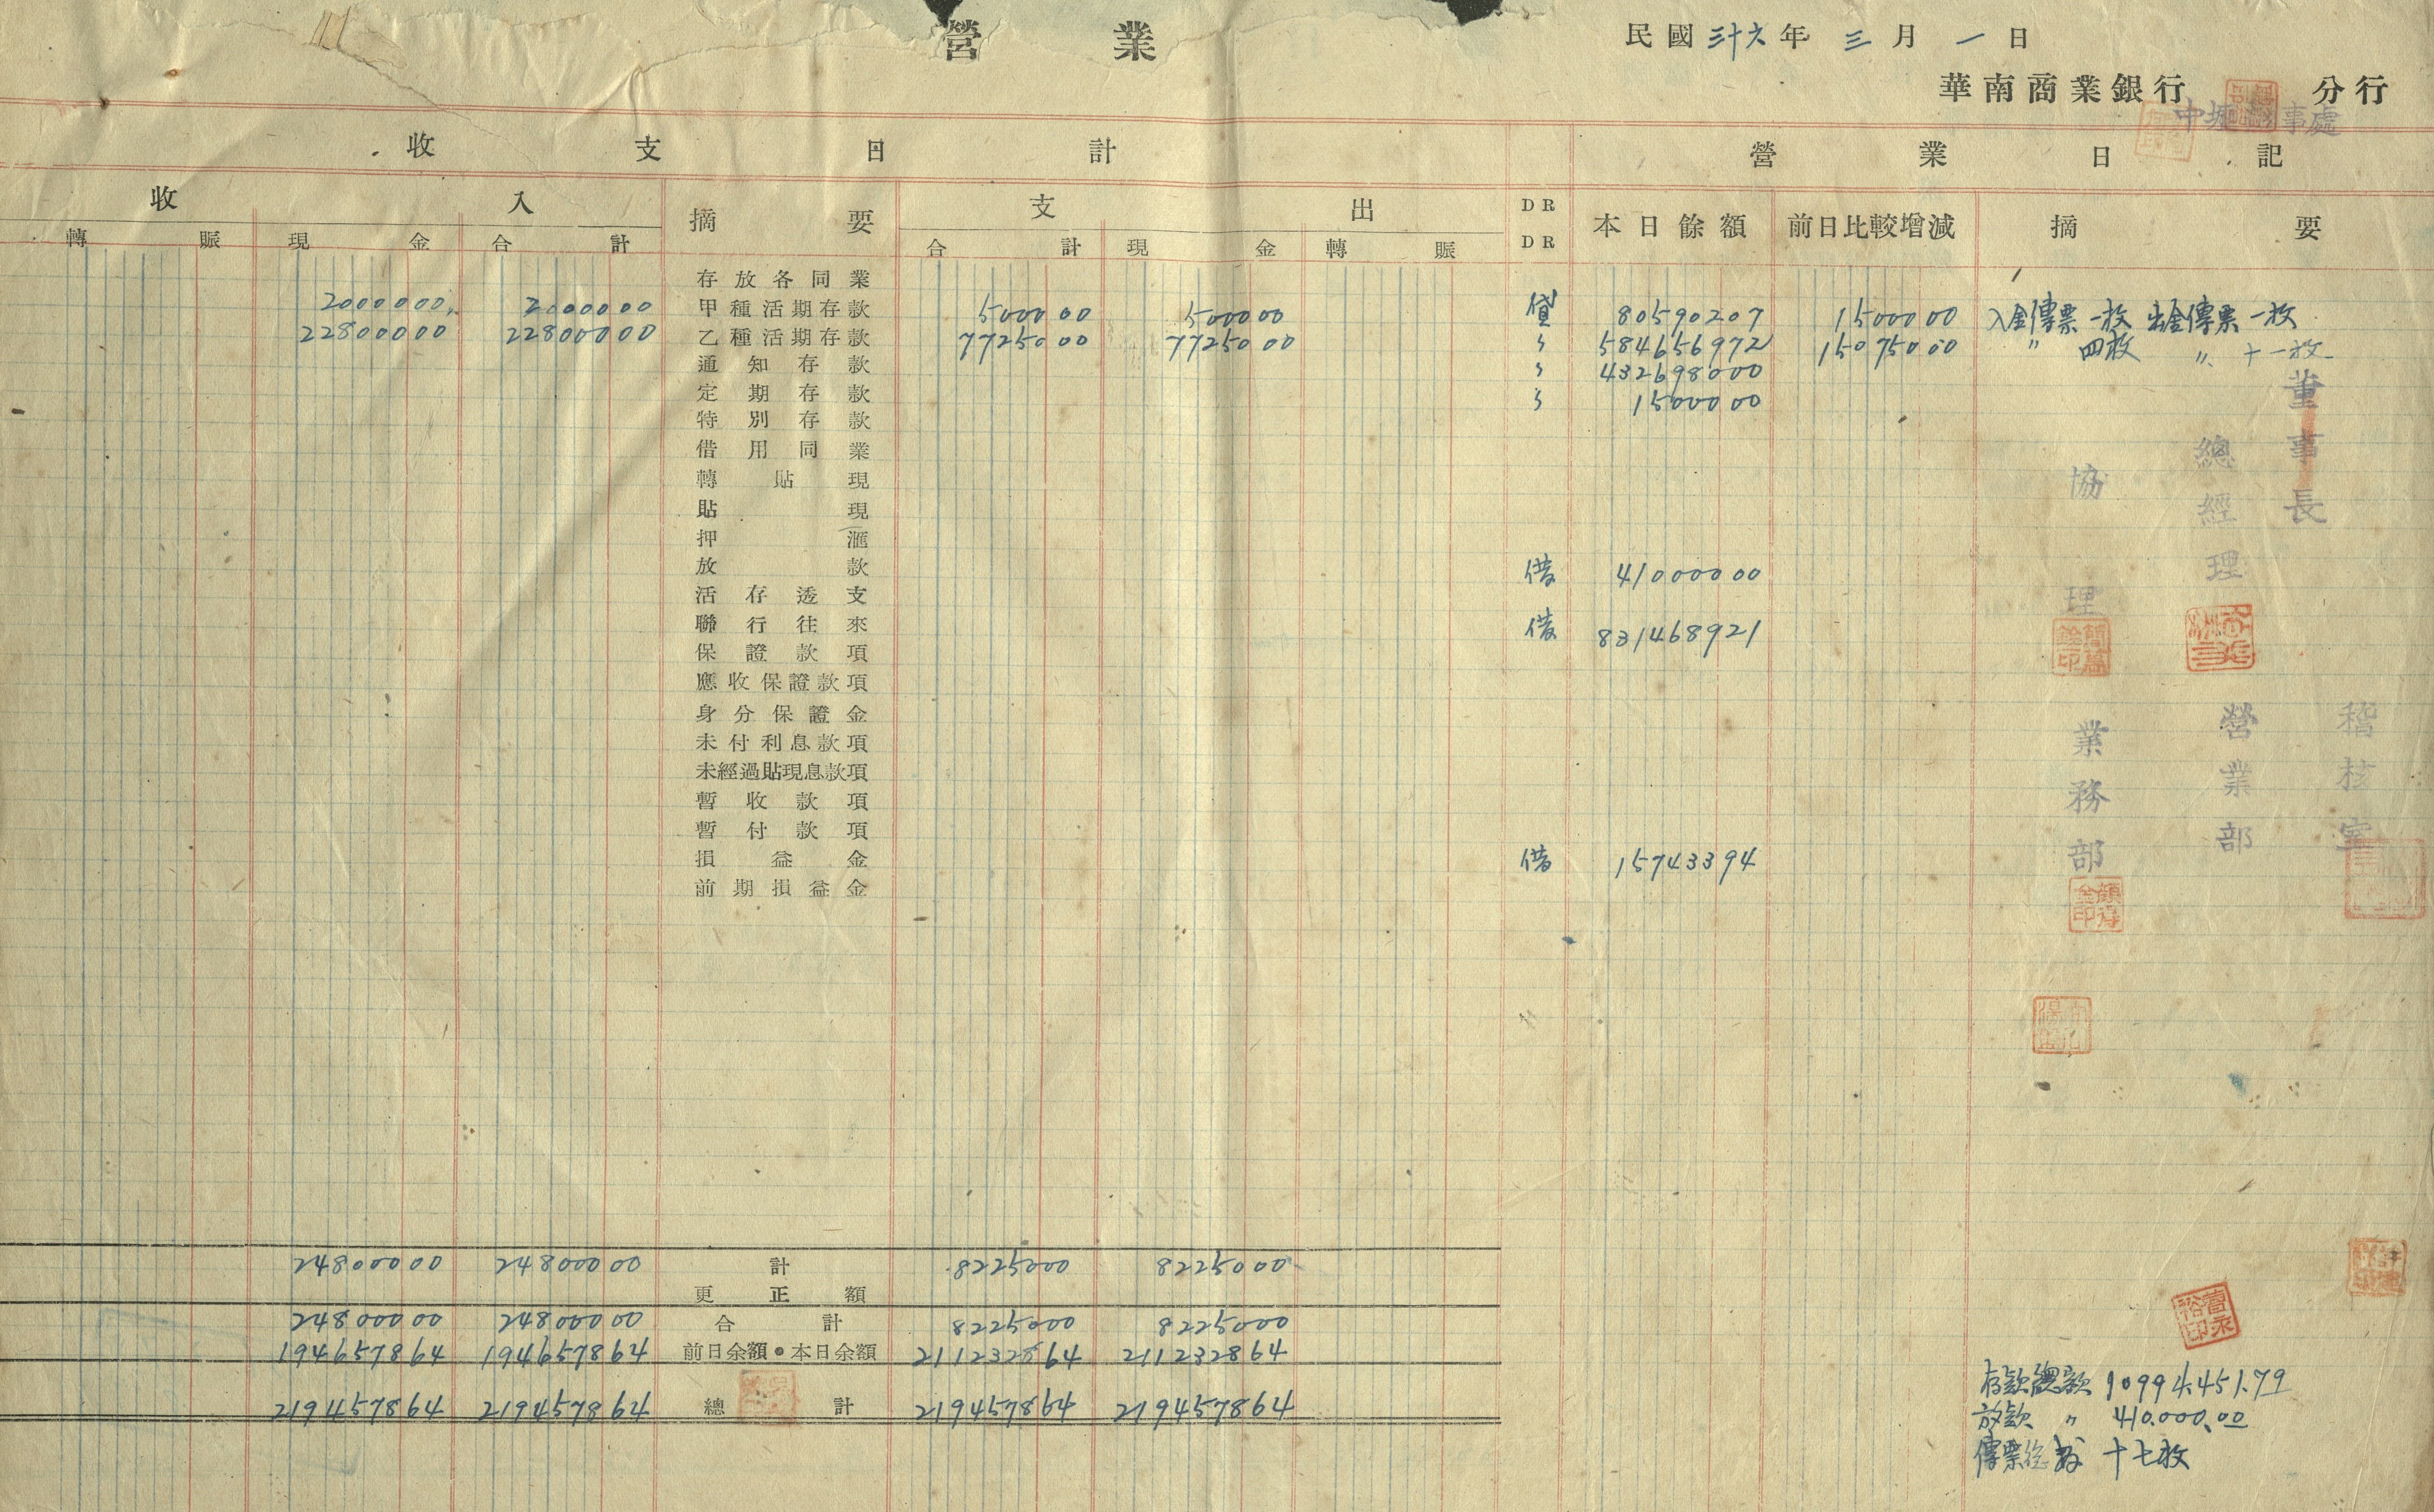 營業
民國三十六年 三月 一日
華南商業銀行 分行
中壢辦事處
收支日計
營業日記
收入 摘要 支出 DR DR 本日餘額 前日比較增減 摘要
轉賬 現金 合計 合計 現金 轉賬
存放各同業
200000 0 2000000 甲種活期存款 5000 00 5000 00 貸 80590207 15000 00 入金傳票一枚 出金傳票一枚
22800000 22800000 乙種活期存款 77250 00 77250 00 〃 584656972 15075000 〃 四枚 〃 十一枚
通知存款 〃 432698000
定期存款 〃 15000 00
特別存款
借用同業
轉貼現
貼現
押滙
放款 借 41000000
活存透支
聯行往來 借 831468921
保證款項
應收保證款項
身分保證金
未付利息款項
未經過貼現息款項
暫收款項
暫付款項
損益金 借 15743394
前期損益金
董事長
總經理
協理
稽核室
營業部
業務部
24800000 24800000 計 8225000 8225000
更正額
24800000 24800000 合計 8225000 8225000
194657864 194657864 前日余額•本日余額 211232864 211232864
219457864 219457864 總計 219457864 219457864
存款總款 10994.451.79
放款 〃 410.000.00
傳票總數 十七枚